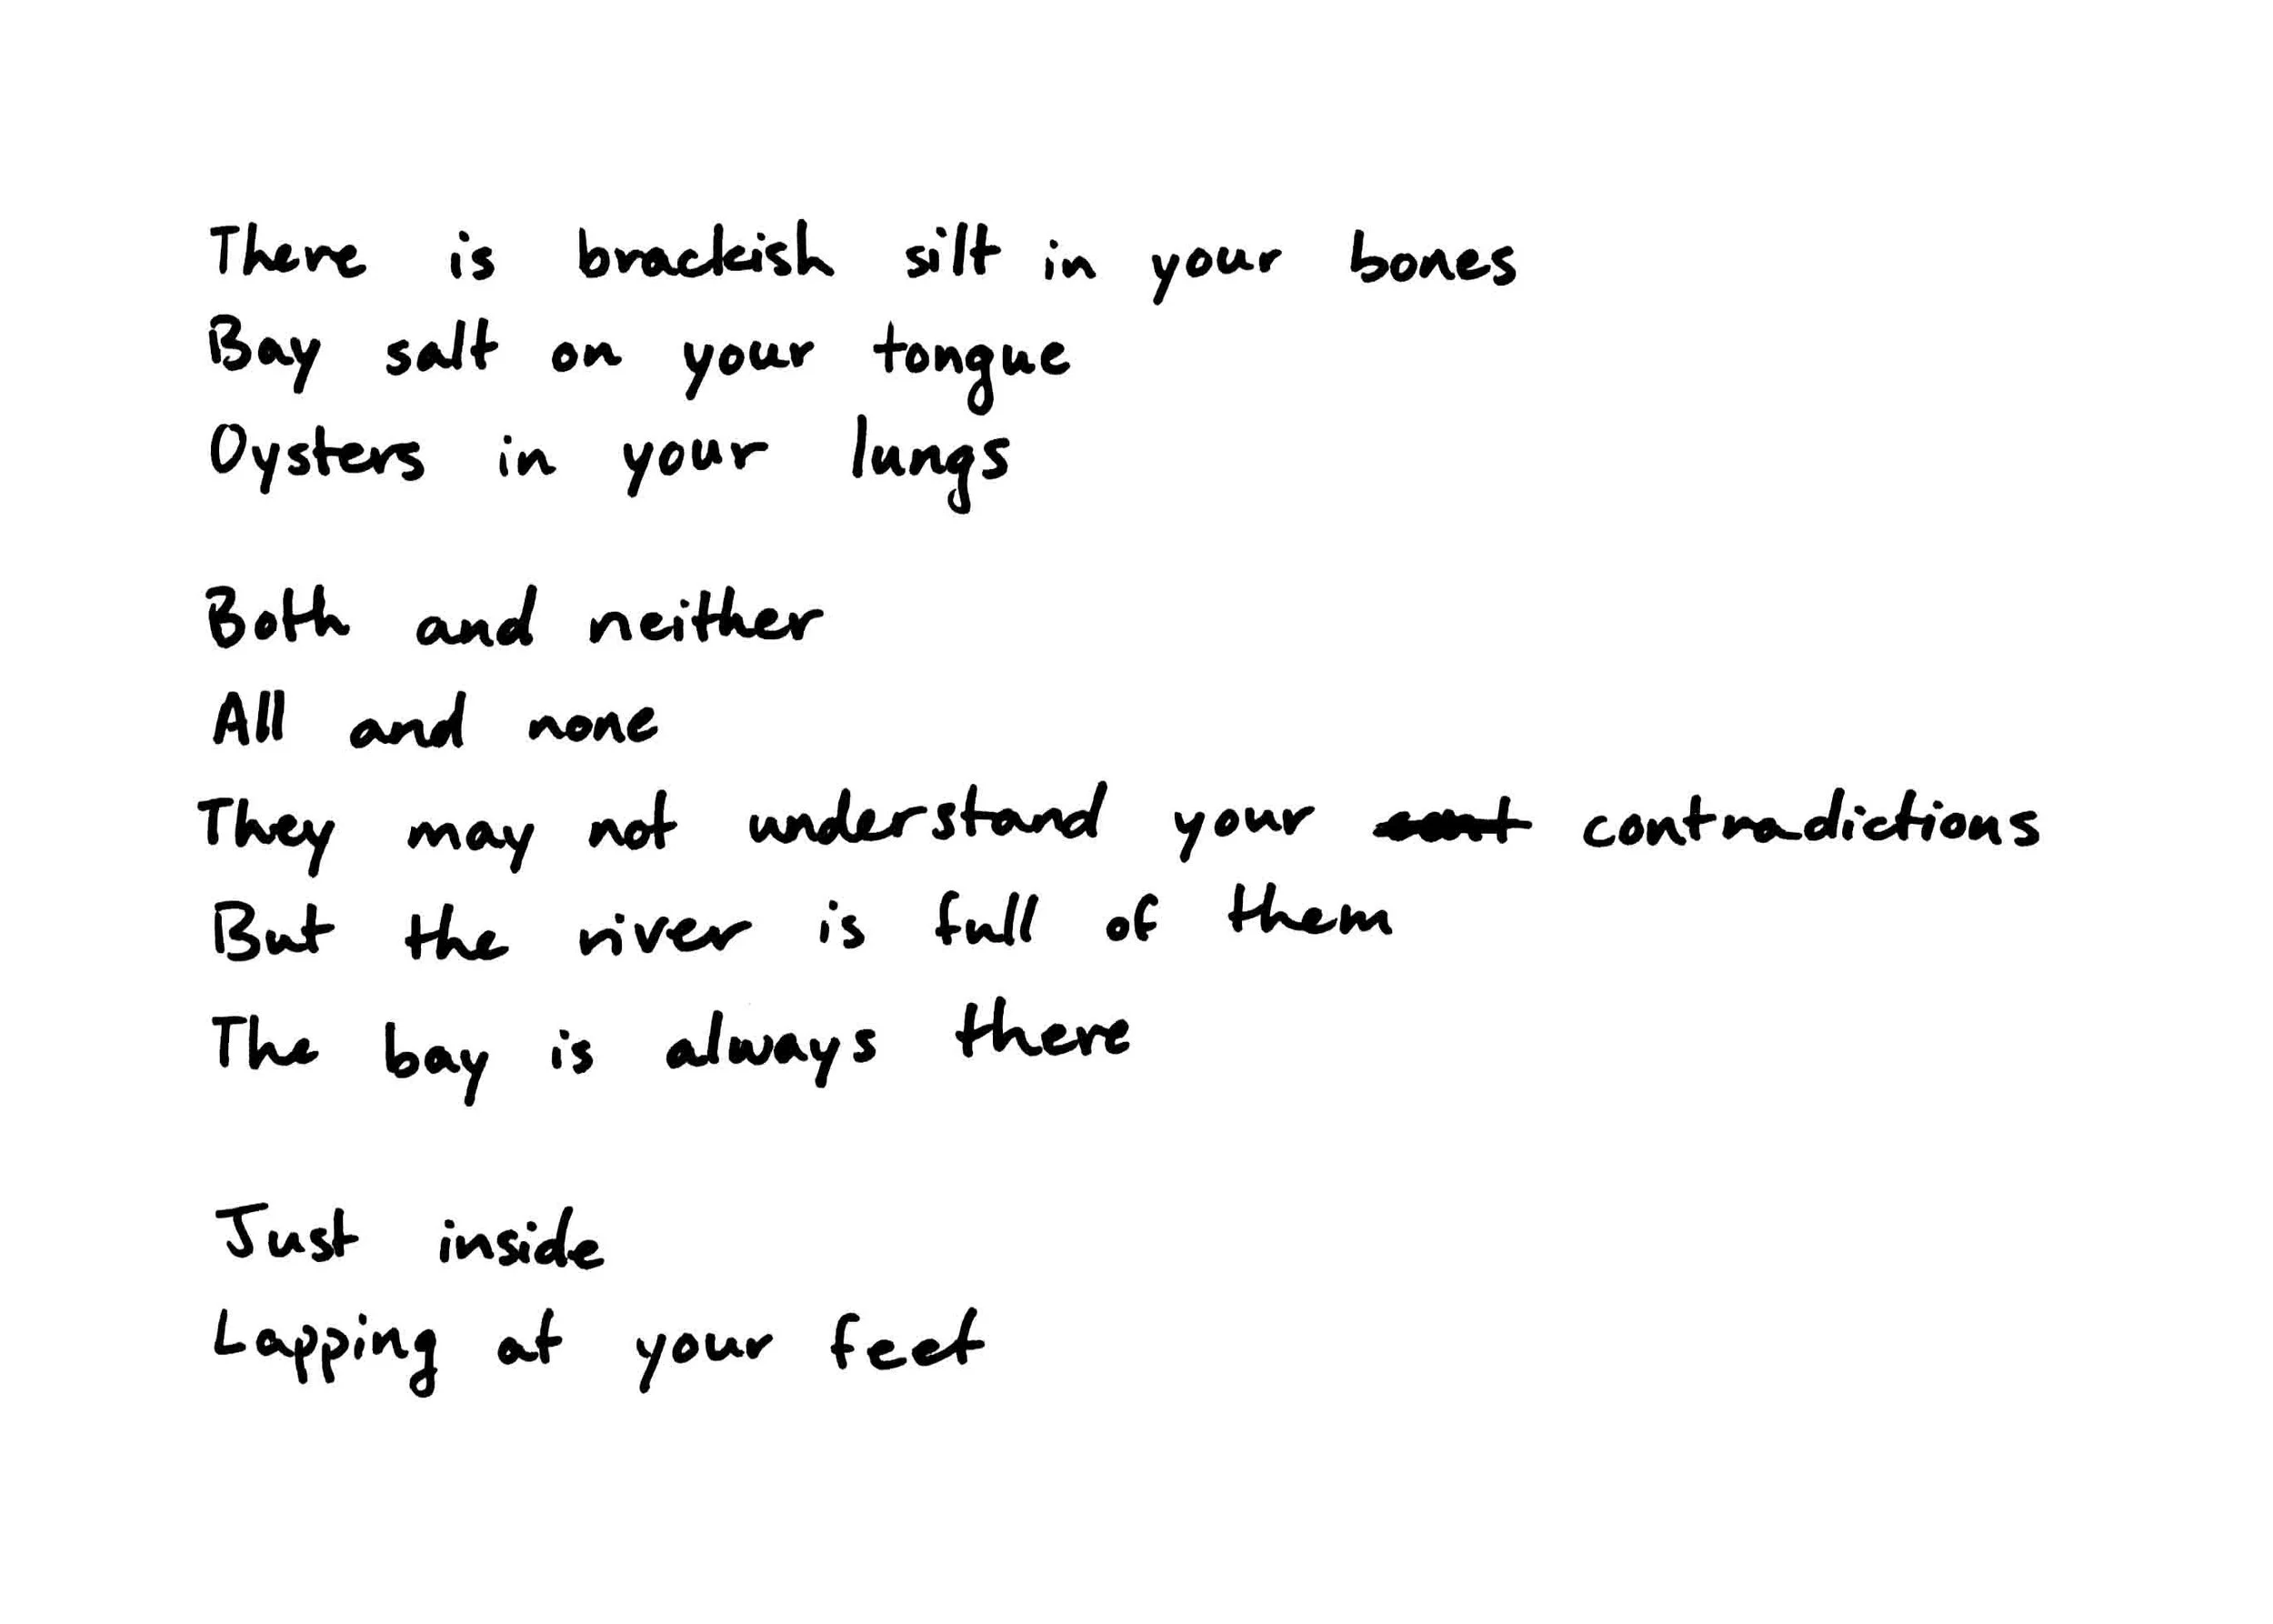 There is brackish silt in your bones
Bay salt on your tongue
Oysters in your lungs
Both and neither
All and none
They may not understand your cont contradictions
But the river is full of them
The bay is always there
Just inside
Lapping at your feet